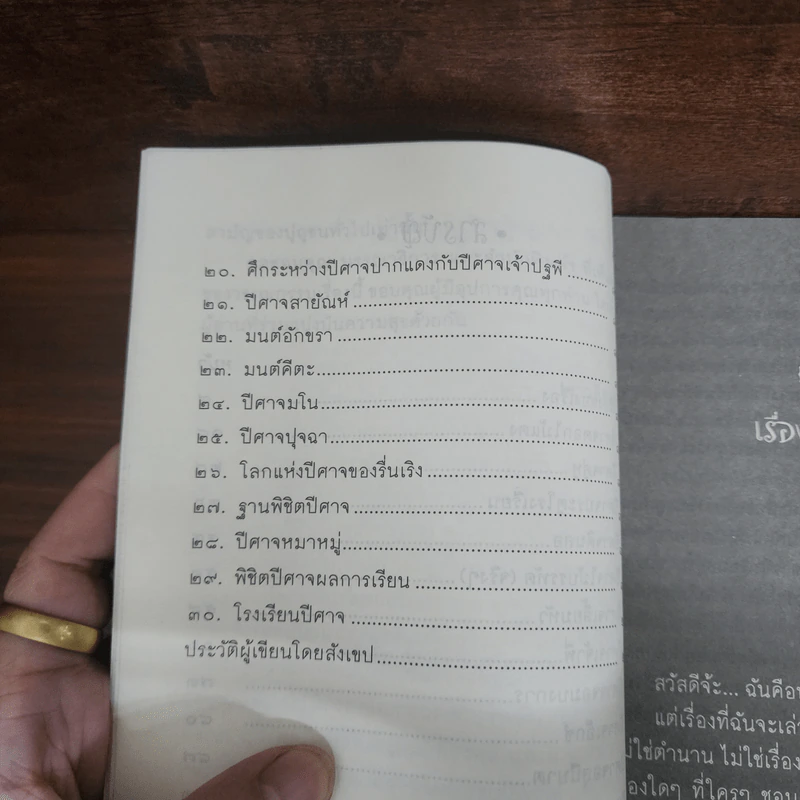 ๒๐. ศึกระหว่างปีศาจปากแดงกับปีศาจเจ้าปฐพี
๒๑. ปีศาจสายัณห์
๒๒. มนต์อักขรา
๒๓. มนต์คีตะ
๒๔. ปีศาจมโน
๒๕. ปีศาจปุจฉา
๒๖. โลกแห่งปีศาจของรื่นเริง
๒๗. ฐานพิชิตปีศาจ
๒๘. ปีศาจหมาหมู่
๒๙. พิชิตปีศาจผลการเรียน
๓๐. โรงเรียนปีศาจ
ประวัติผู้เขียนโดยสังเขป
สวัสดีจ้ะ... ฉันคือ
แต่เรื่องที่ฉันจะเล่า
ไม่ใช่ตำนาน ไม่ใช่เรื่อง
ใดๆ ที่ใครๆ ชอบ